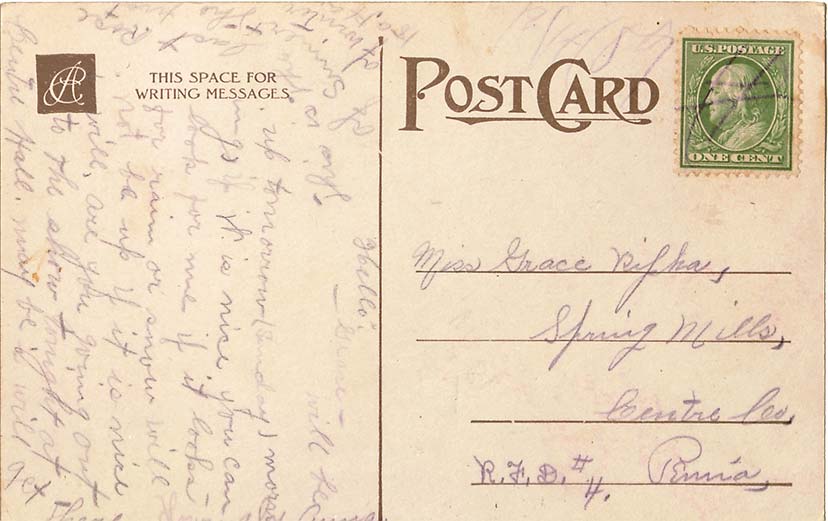 THIS SPACE FOR
WRITING MESSAGES
POST CARD
U.S. POSTAGE
ONE CENT
Hello,
Grace – will be
up tomorrow (Sunday) morn
ings if it is nice you can
look for me if it looks
for rain or snow will
not be up if it is nice
will, are you going out
to the show tonight at
Centre Hall. may be I will get
Miss Grace Rifka,
Spring Mills,
Centre Co,
R.F.D. # 4. Penna,